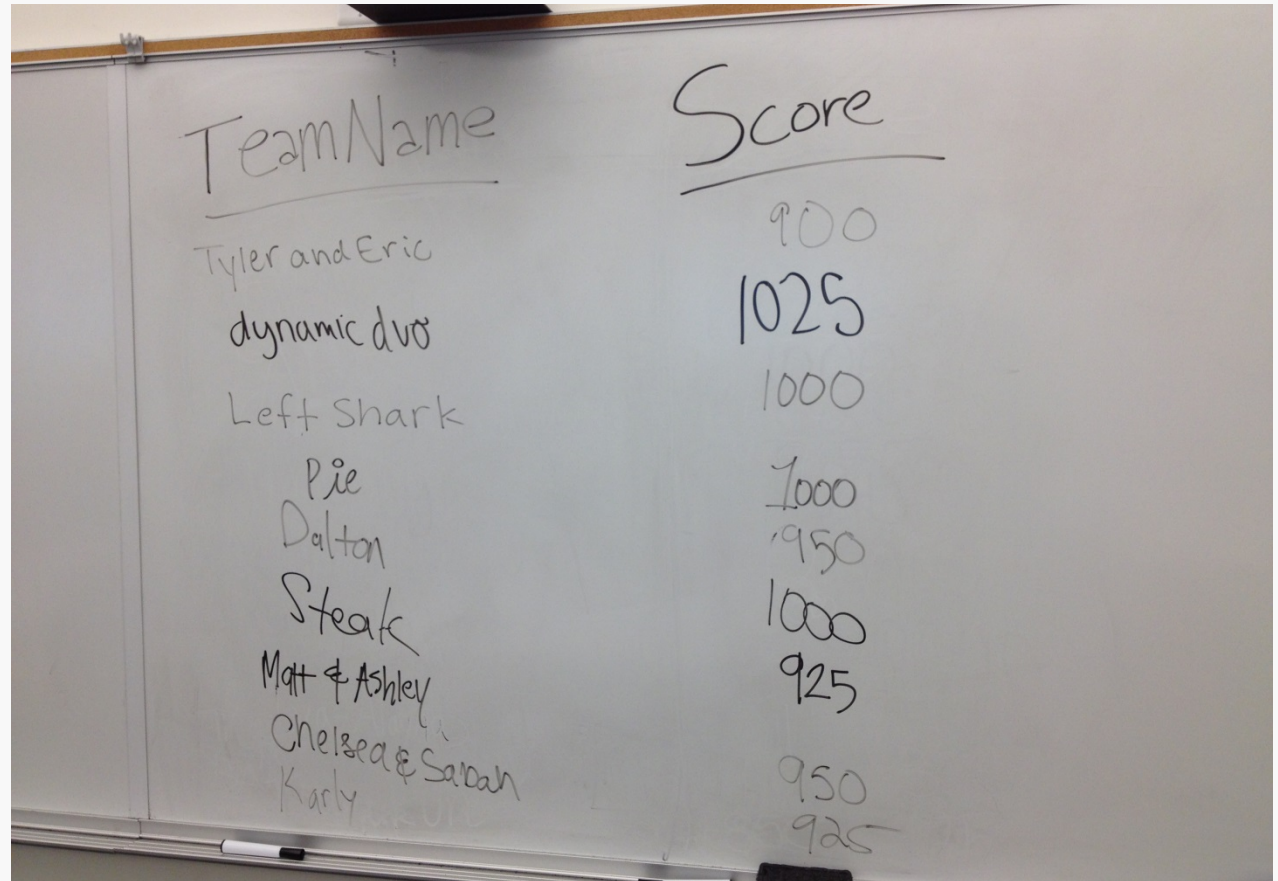 TeamName Score
Tyler and Eric 900
dynamic duo 1025
Left Shark 1000
Pie 1000
Dalton 950
Steak 1000
Matt & Ashley 925
Chelsea & Sarah 950
Karly 925